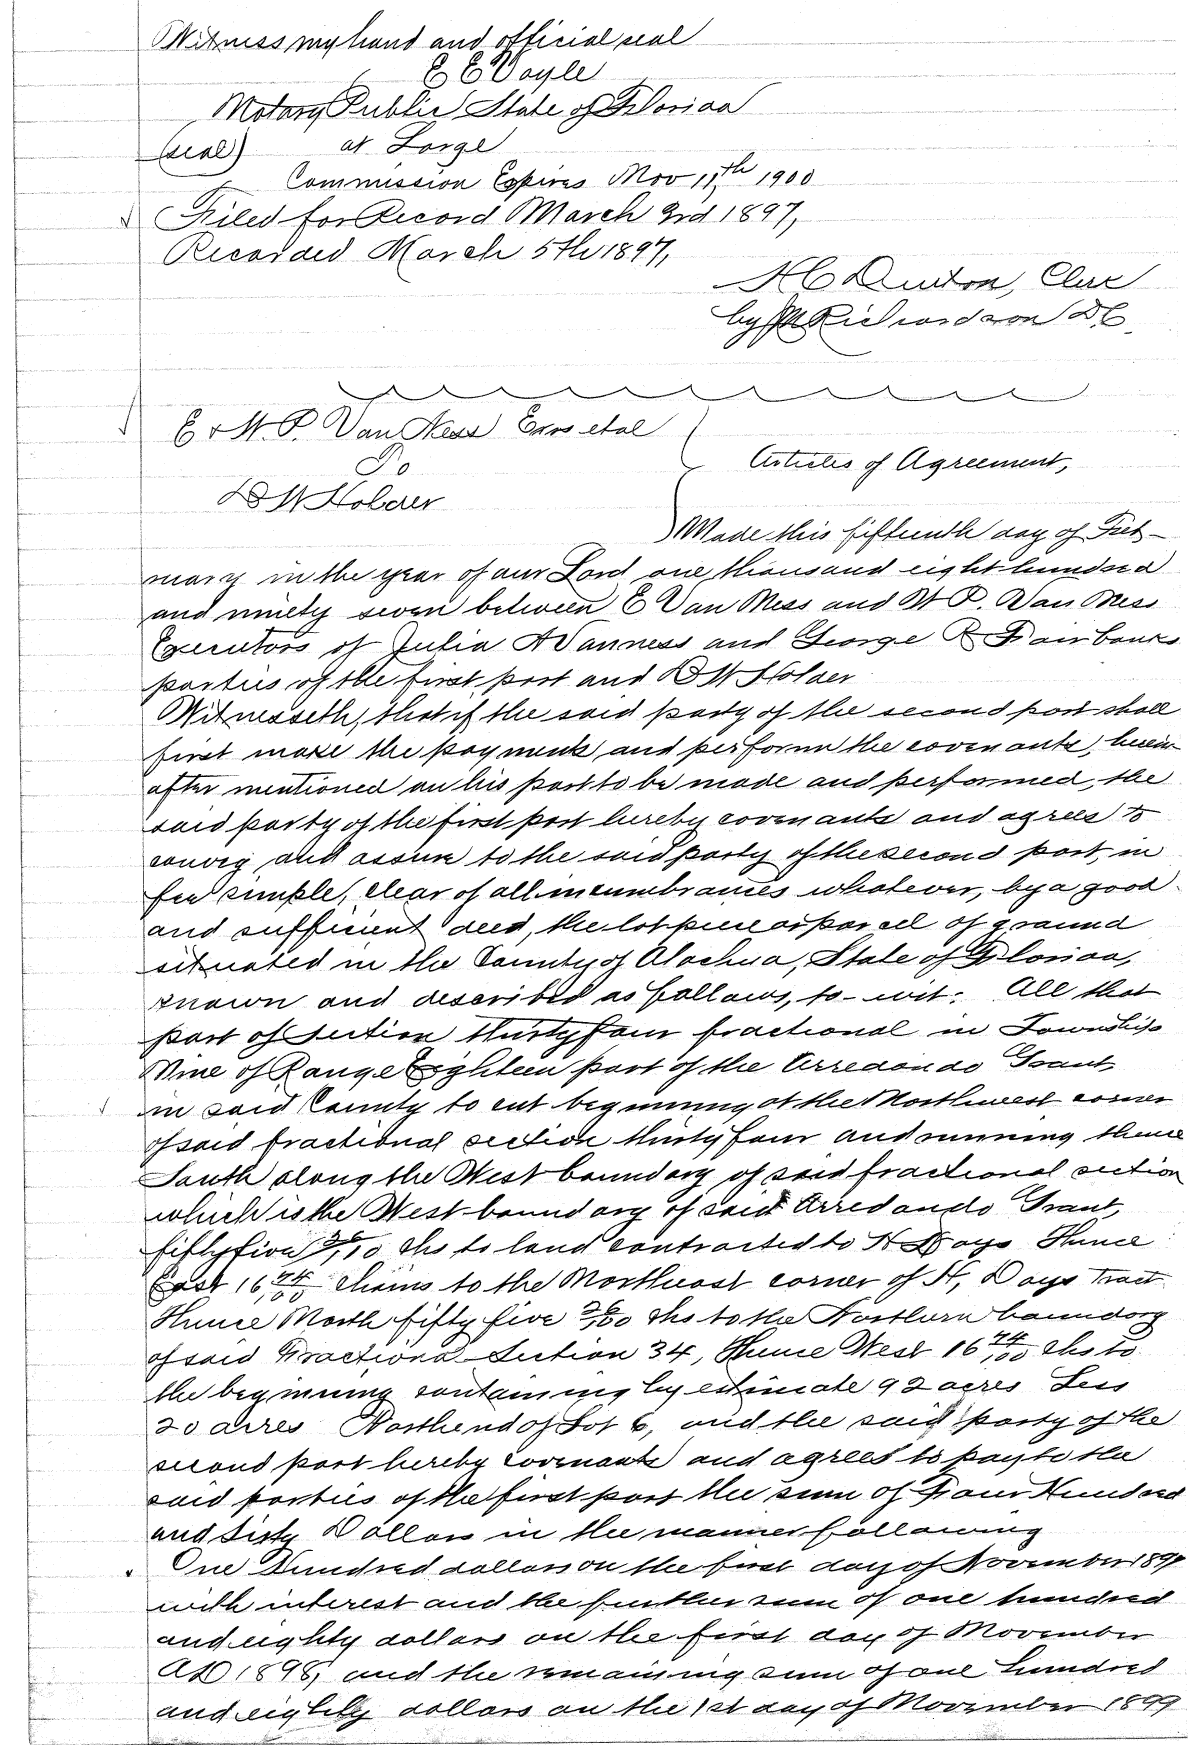 Witness my hand and official seal
E E Voyle
Notary Public State of Florida
(seal) at Large
Commission Expires Nov 11th 1900
Filed for Record March 3rd 1897,
Recorded March 5th 1897,
H C Denton, Clerk
by Richardson D C
E & W. P. Van Ness Exrs etal
To
Articles of Agreement,
D W Holder
Made this fifteenth day of Feb-
ruary in the year of our Lord one thousand eight hundred
and ninety seven between E Van Ness and W P. Van Ness
Executors of Julia A Vanness and George R Fairbanks
parties of the first part and D W Holder
Witnesseth, that if the said party of the second part shall
first make the payment and perform the covenants, herein
after mentioned on his part to be made and performed, the
said party of the first part hereby covenants and agrees to
convey and assure to the said party of the second part, in
fee simple, clear of all incumbrances whatever, by a good
and sufficient deed, the lot piece or parcel of ground
situated in the County of Alachua, State of Florida,
known and described as follows, to-wit: All that
part of Section thirty four fractional in Township
Nine of Range Eighteen part of the Arredondo Grant
in said County to wit beginning at the Northwest corner
of said fractional section thirty four and running thence
South along the West boundary of said fractional section
which is the West boundary of said Arredondo Grant,
fifty five chs to land contracted to H Days Thence
East 16 74/100 chains to the Northeast corner of H, Days Tract
Thence North fifty five chs to the Northern boundary
of said Fractiona Section 34, Thence West 16 74/100 chs to
the beginning containing by estimate 92 acres Less
20 acres North end of Lot 6, and the said party of the
second part hereby covenants and agrees to pay to the
said parties of the first part the sum of Four Hundred
and Sixty Dollars in the manner following
One Hundred dollars on the first day of November 1897
with interest and the further sum of one hundred
and eighty dollars on the first day of November
AD 1898, and the remaining sum of one hundred
and eighty dollars on the 1st day of November 1899